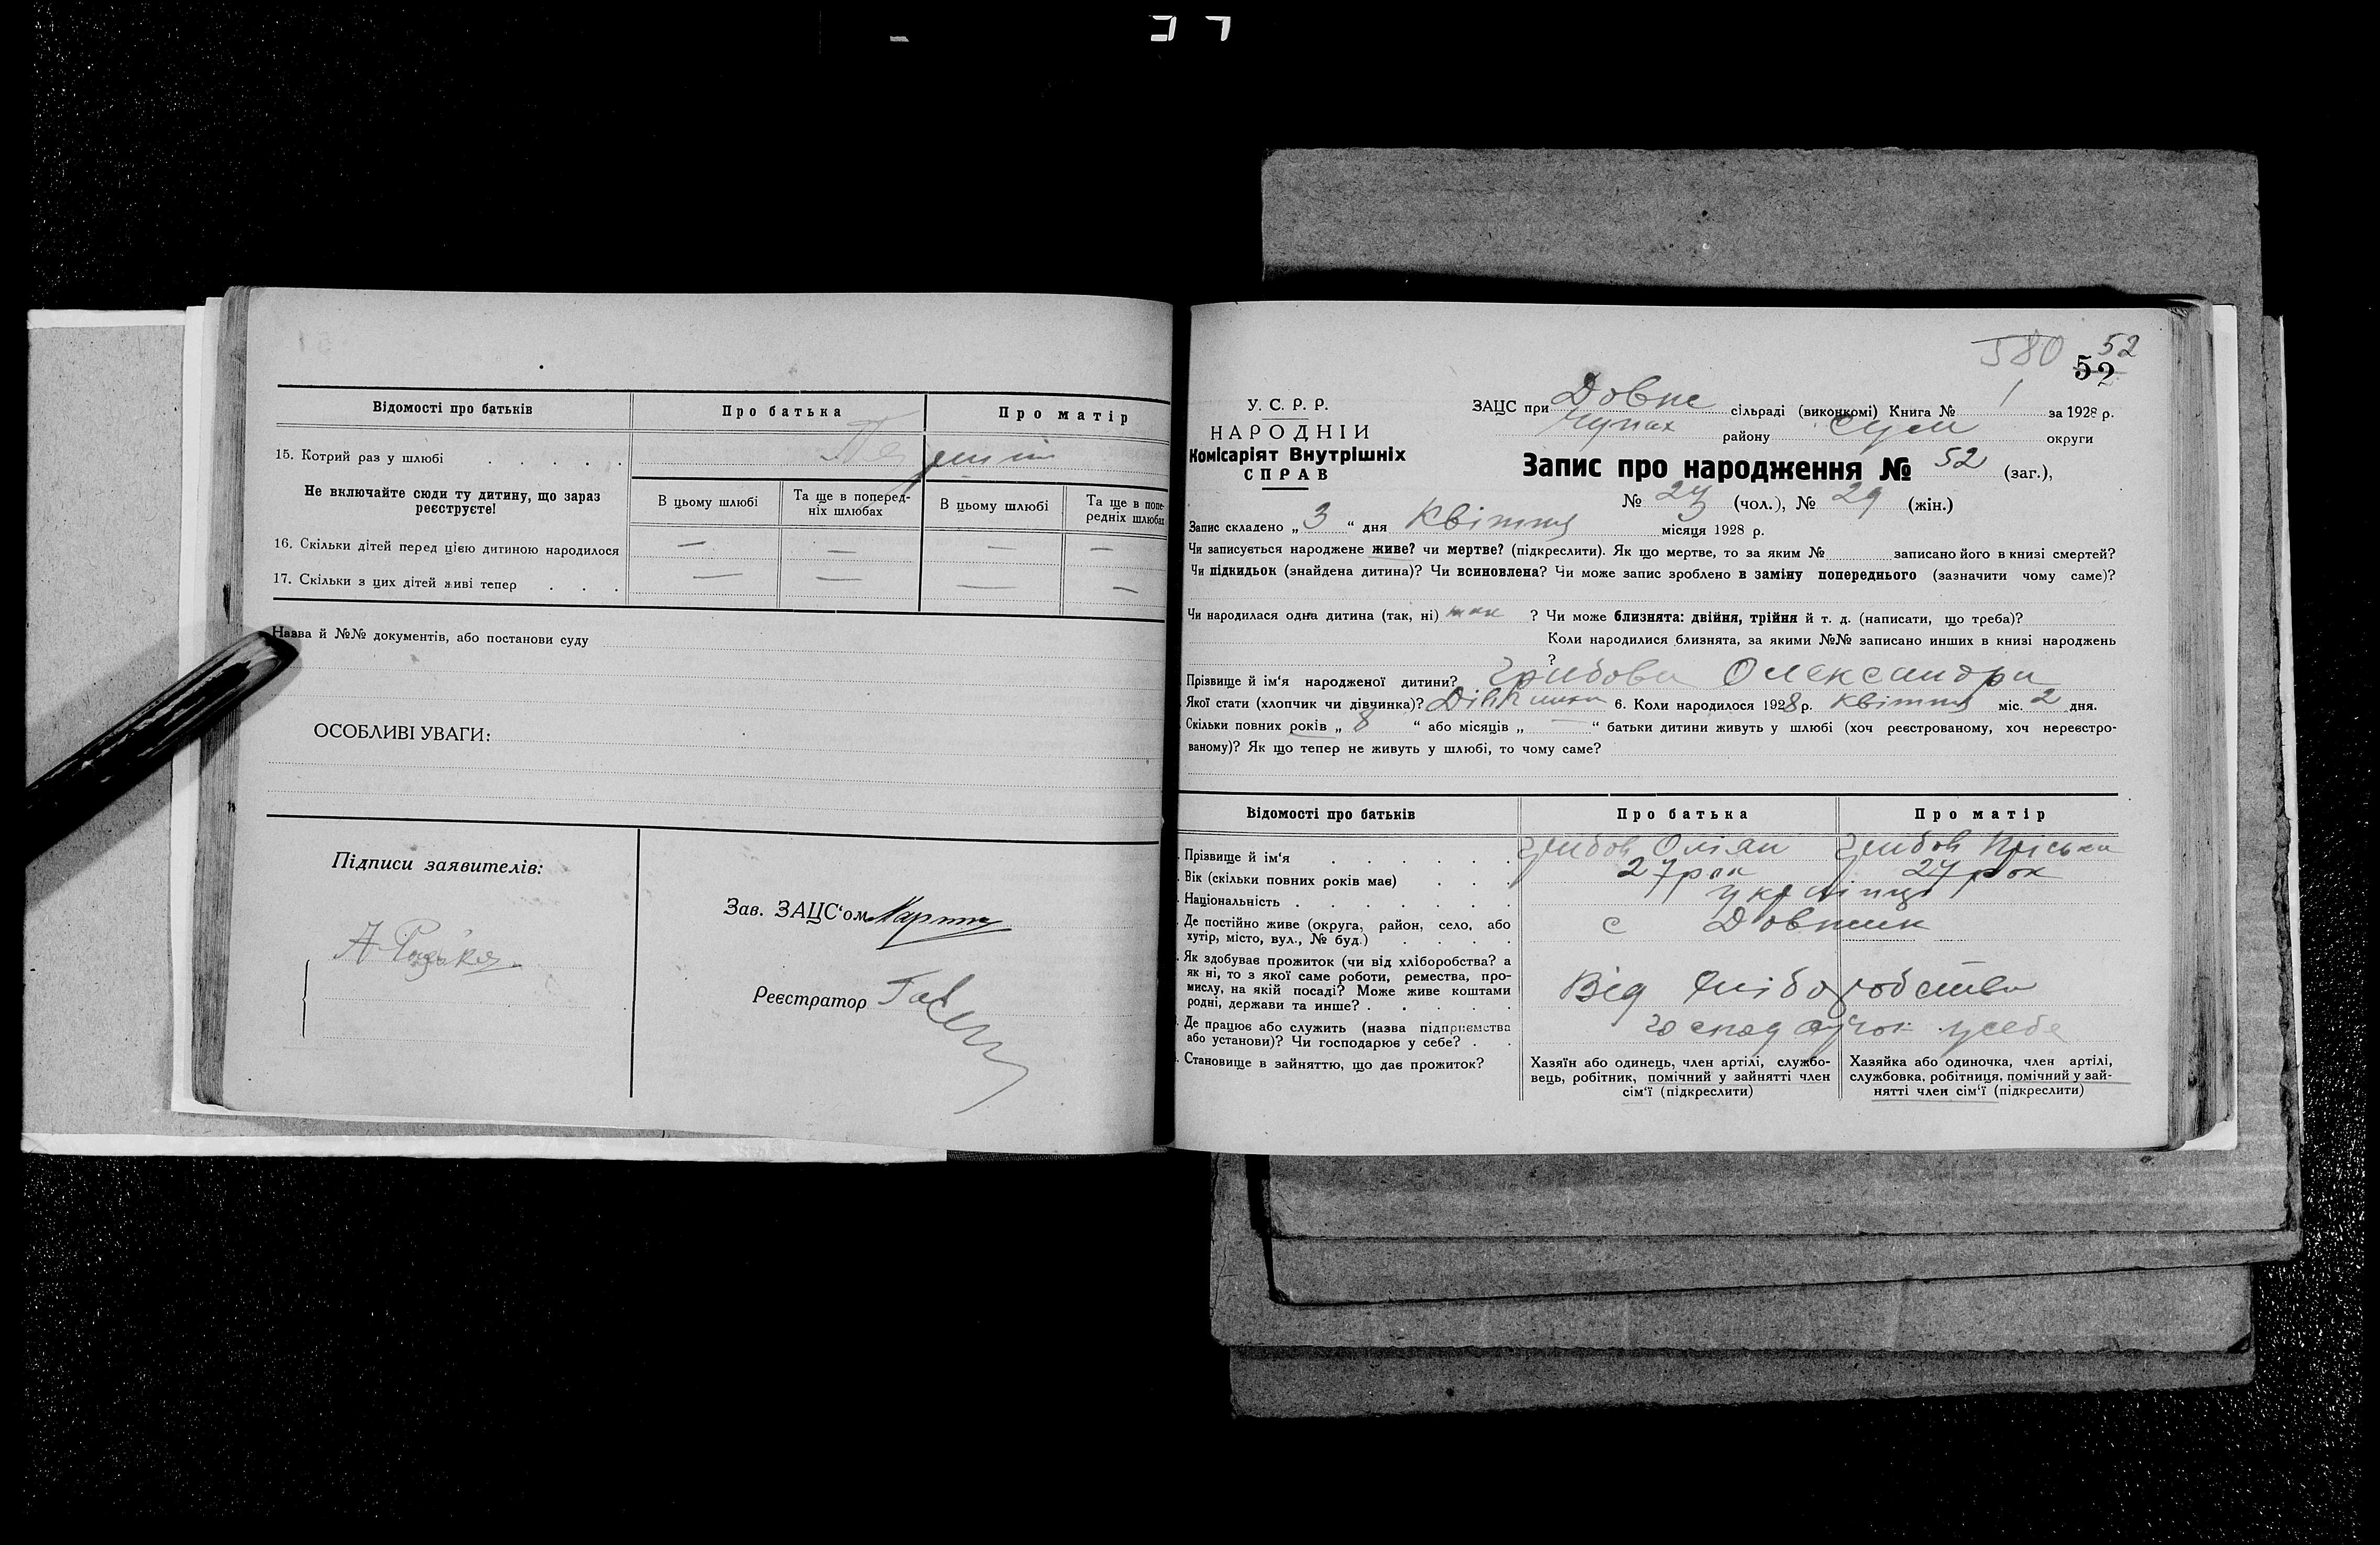 Відомості про батьків
Про батька
Про матір
15. Котрий раз у шлюбі
Не включайте сюди ту дитину, що зараз
реєструєте!
В цьому шлюбі
Та ще в поперед-
ніх шлюбах
В цьому шлюбі
Та ще в попе-
редніх шлюбах
16. Скільки дітей перед цією дитиною народилося — — — —
17. Скільки з цих дітей живі тепер — — — —
Назва й №№ документів, або постанови суду
ОСОБЛИВІ УВАГИ:
Підписи заявителів:
Зав. ЗАЦС‘ом
Реєстратор
580 52
52
У. С. Р. Р.
НАРОДНІЙ
Комісаріят Внутрішніх
СПРАВ
ЗАЦС при Довж сільраді (виконкомі) Книга № 1 за 1928 р.
Чупах району Сум округи
Запис про народження № 52 (заг.),
№ 23 (чол.), № 29 (жін.)
Запис складено „ 3 “ дня Квітня місяця 1928 р.
Чи записується народжене живе? чи мертве? (підкреслити). Як що мертве, то за яким № записано його в книзі смертей?
Чи підкидьок (знайдена дитина)? Чи всиновлена? Чи може запис зроблено в заміну попереднього (зазначити чому саме)?
Чи народилася одна дитина (так, ні) так ? Чи може близнята: двійня, трійня й т. д. (написати, що треба)?
Коли народилися близнята, за якими №№ записано инших в книзі народжень
?
Прізвище й ім‘я народженої дитини? Грибова Олександра
Якої стати (хлопчик чи дівчинка)? Дівчинка 6. Коли народилося 1928 р. Квітня міс. 2 дня.
Скільки повних років „ 8 “ або місяців „ — “ батьки дитини живуть у шлюбі (хоч реєстрованому, хоч нереєстро-
ваному)? Як що тепер не живуть у шлюбі, то чому саме?
Відомості про батьків
Про батька
Про матір
Прізвище й ім‘я Грибов Гриб
Вік (скільки повних років має) 27 рок 27 рок
Національність українці
Де постійно живе (округа, район, село, або
хутір, місто, вул., № буд.)
с Довжик
Як здобуває прожиток (чи від хліборобства? а
як ні, то з якої саме роботи, ремества, про-
мислу, на якій посаді? Може живе коштами
родні, держави та инше?
Від хліборобства
Де працює або служить (назва підприємства
або установи)? Чи господарює у себе?
у себе
Становище в зайняттю, що дає прожиток?
Хазяїн або одинець, член артілі, службо-
вець, робітник, помічний у зайнятті член
сім‘ї (підкреслити)
Хазяйка або одиночка, член артілі,
службовка, робітниця, помічний у зай-
нятті член сім‘ї (підкреслити)